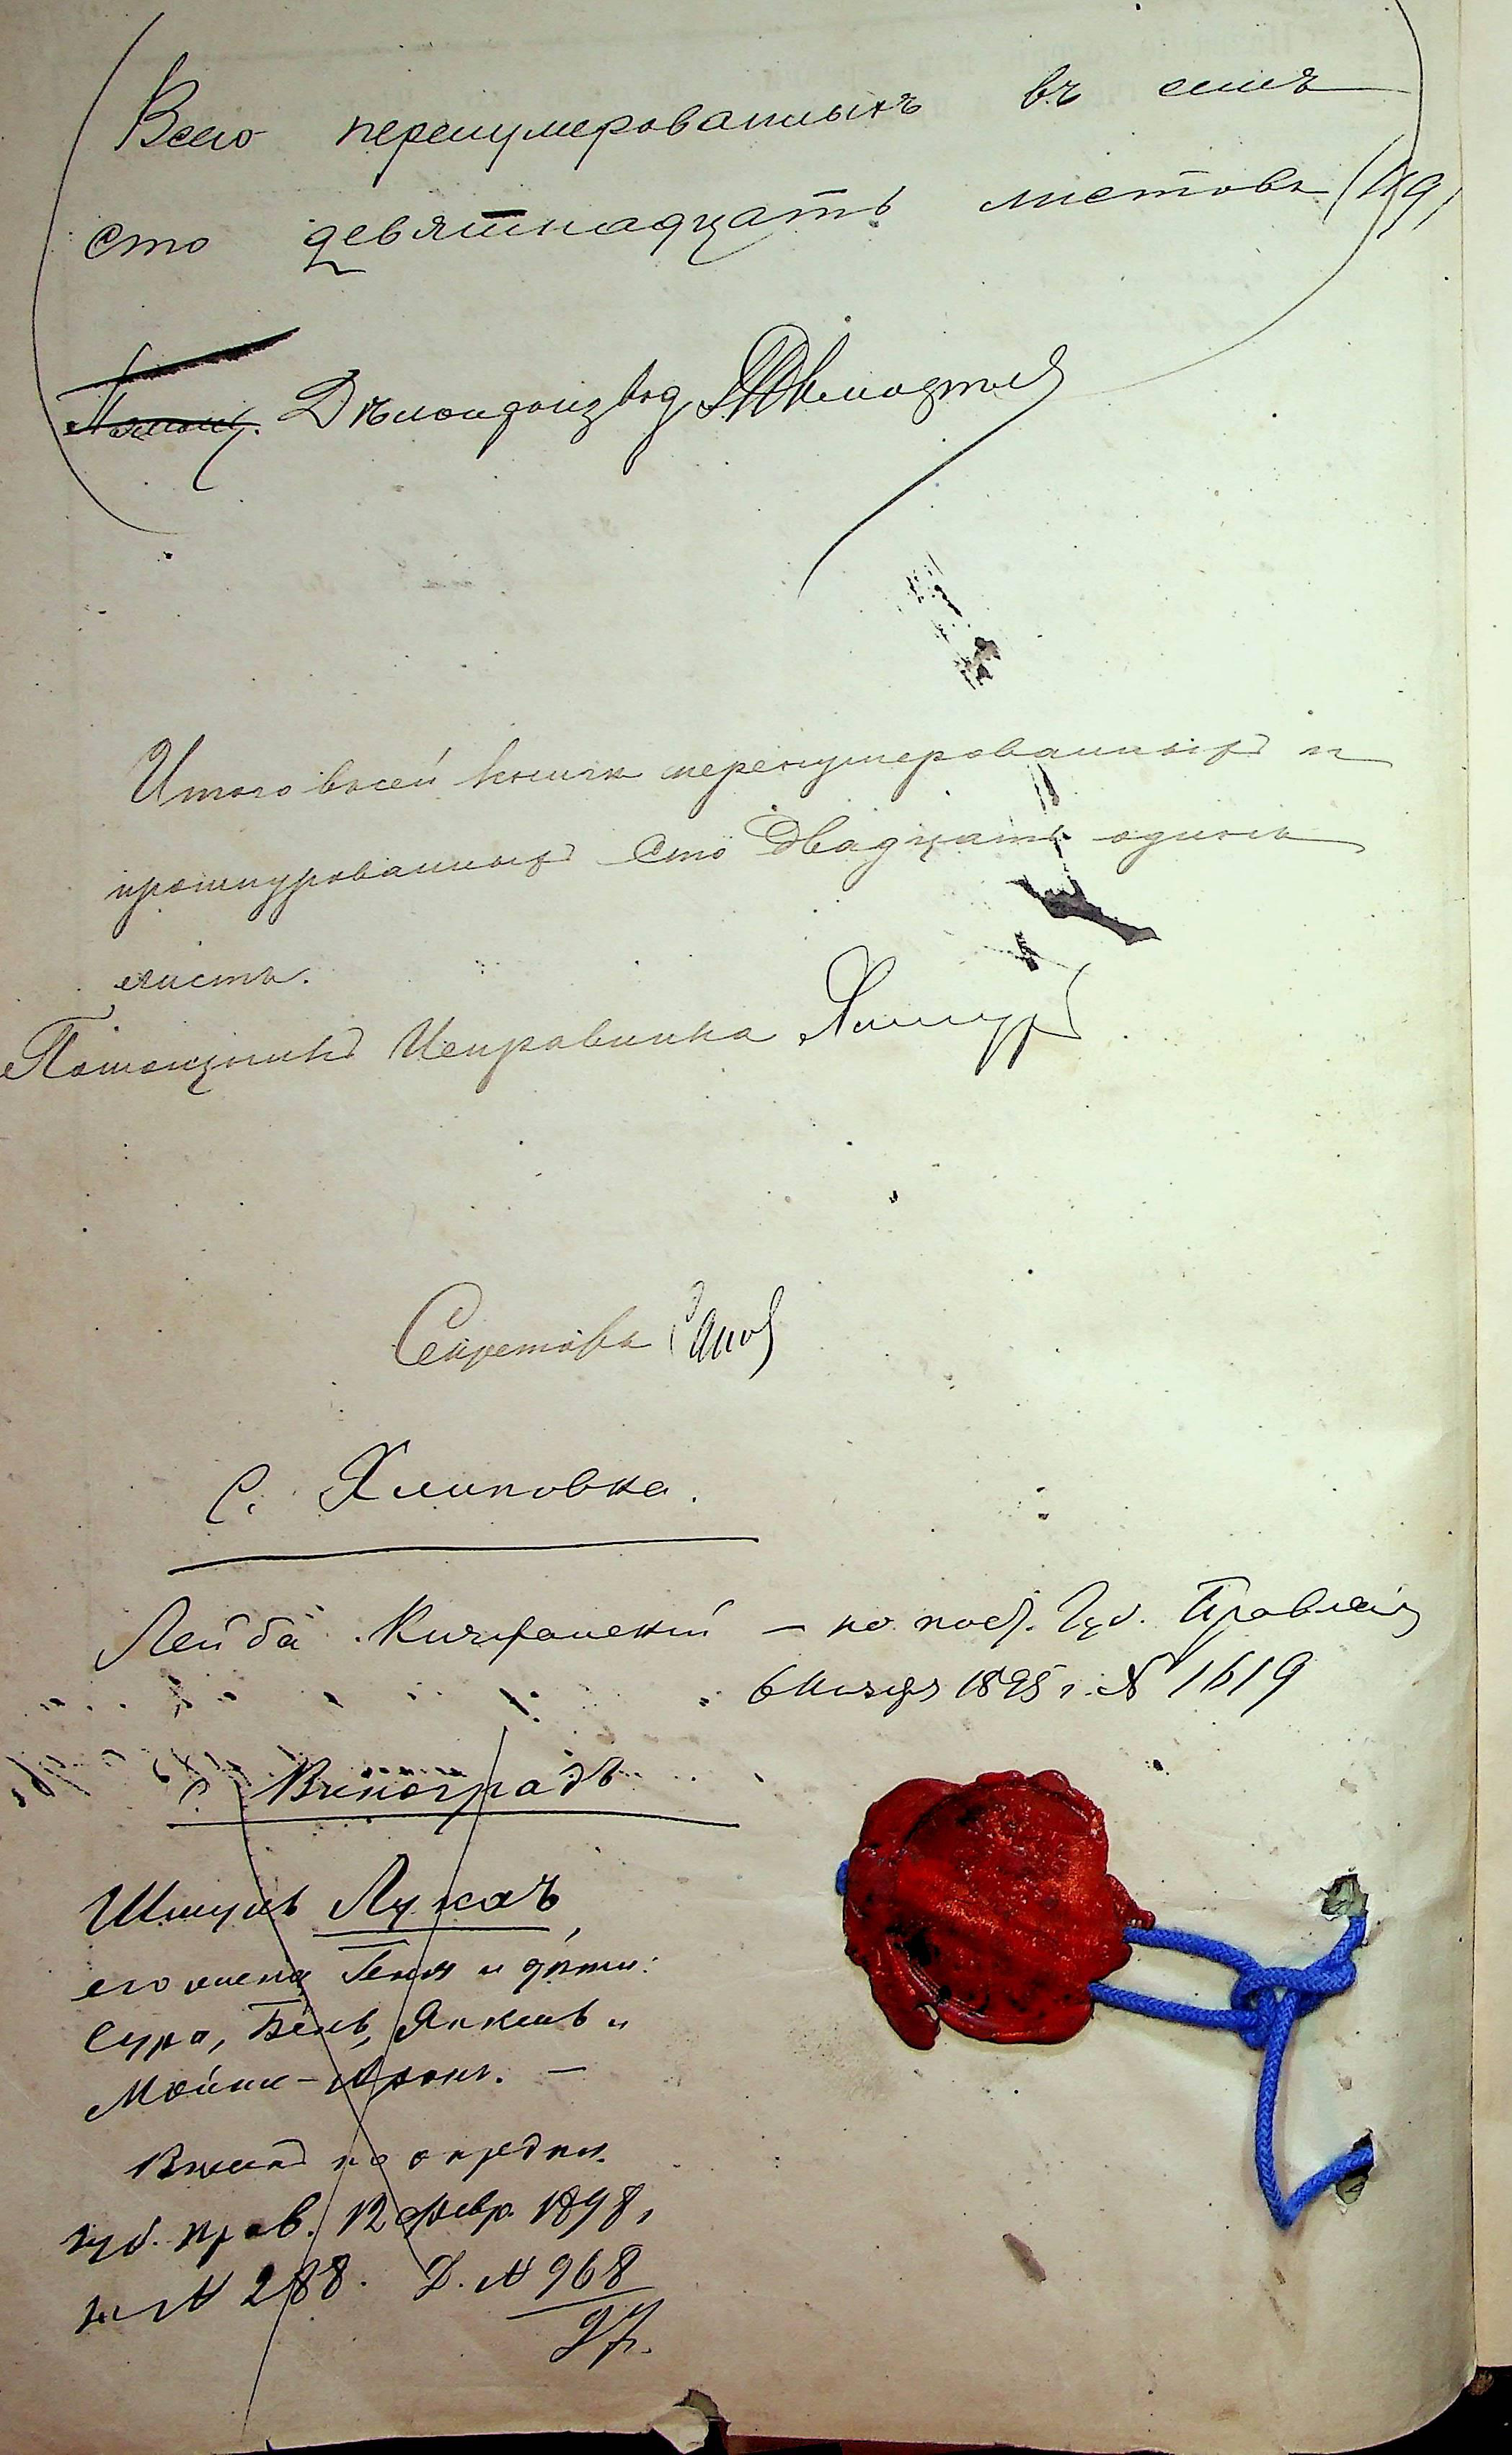 Всего перенумерованныхъ въ семъ
сто девятнадцать листовъ (119)
Дѣлопроизвод
Итого в сей книгѣ перенумерованныхъ и
прошнурованныхъ Сто Двадцать одинъ
листъ.
Помощникъ Исправника
Секретарь
С. Хлиповка.
Лейба – по пост. Губ. Правленія
1895 г. № 1619
с. Виноградъ
Шмуль Лукачъ,
его жена Геня и дѣти:
Сура, Бейла, Янкель и
Мойше-Аронъ. –
по опредѣл.
губ. прав. 12 Февр. 1898,
за № 288. Д. № 968
97.